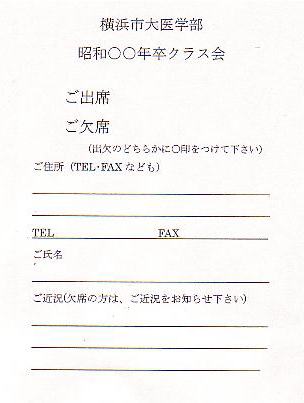 横浜市大医学部
昭和〇〇年卒クラス会
ご出席
ご欠席
(出欠のどちらかに〇印をつけて下さい)
ご住所（TEL･FAXなども）
TEL FAX
ご氏名
ご近況(欠席の方は、ご近況をお知らせ下さい)